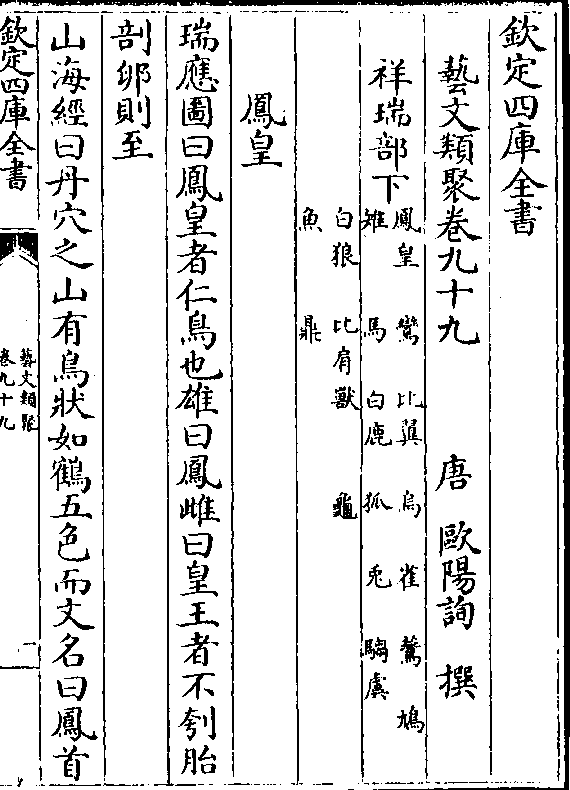 欽定四庫全書
藝文類聚卷九十九 唐 歐陽詢 撰
祥瑞部下
鳳皇 鸞 比翼 烏 雀 鷰 鳩
雉 馬 白鹿 狐 兎 騶虞
白狼 比肩獸 龜
魚 鼎
鳳皇
瑞應圖曰鳳皇者仁鳥也雄曰鳳雌曰皇王者不刳胎
剖卵則至
山海經曰丹穴之山有鳥狀如鶴五色而文名曰鳳首
欽定四庫全書
藝文類聚
卷九十九